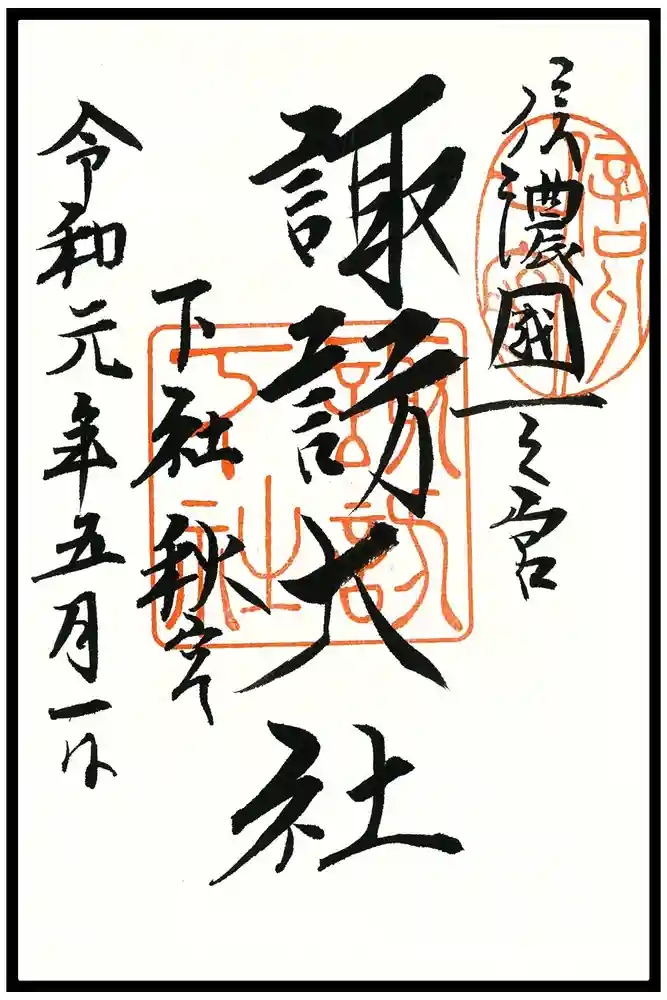 信濃國一之宮
諏訪大社
下社秋宮
令和元年五月一日